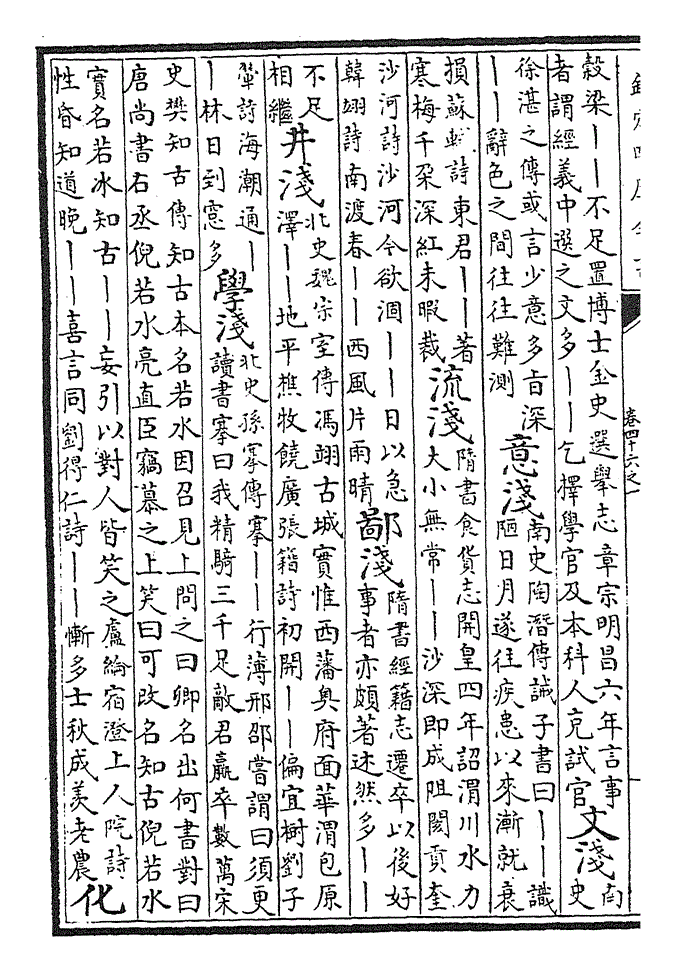 欽定四庫全書
卷四十六之一
穀梁丨丨不足置博士金史選舉志章宗明昌六年言事
者謂經義中選之文多丨丨乞擇學官及本科人充試官
文淺
南
史
徐湛之傳或言少意多旨深
丨丨辭色之間往往難測
意淺
南史陶潛傳誡子書曰丨丨識
陋日月遂往疾患以來漸就衰
損蘇軾詩東君丨丨著
寒梅千朶深紅未暇裁
流淺
隋書食貨志開皇四年詔渭川水力
大小無常丨丨沙深即成阻閡貢奎
沙河詩沙河今欲涸丨丨日以急
韓翃詩南渡春丨丨西風片雨晴
鄙淺
隋書經籍志遷卒以後好
事者亦頗著述然多丨丨
不足
相繼
井淺
北史魏宗室傳馮翊古城實惟西藩奥府面華渭包原
澤丨丨地平樵牧饒廣張籍詩初開丨丨偏宜樹劉子
翬詩海潮通丨
丨林日到窓多
學淺
北史孫搴傳搴丨丨行薄邢邵嘗謂曰須更
讀書搴曰我精騎三千足敵君羸卒數萬宋
史樊知古傳知古本名若水因召見上問之曰卿名出何書對曰
唐尚書右丞倪若水亮直臣竊慕之上笑曰可改名知古倪若水
實名若冰知古丨丨妄引以對人皆笑之盧綸宿澄上人院詩
性昏知道晚丨丨喜言同劉得仁詩丨丨慚多士秋成羡老農
化